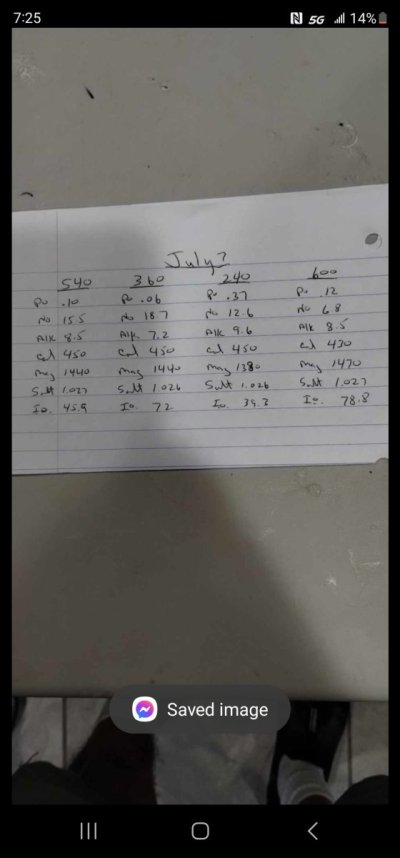 7:25 N 5G 14%
July 7
540 360 240 600
Po .10 Po .06 Po .37 Po .12
No 15.5 No 18.7 No 12.6 No 6.8
Alk 8.5 Alk 7.2 Alk 9.6 Alk 8.5
Cal 450 Cal 450 Cal 450 Cal 430
Mag 1440 Mag 1440 Mag 1380 Mag 1470
Salt 1.027 Salt 1.026 Salt 1.026 Salt 1.027
Io. 45.9 Io. 72 Io. 39.3 Io. 78.8
Saved image